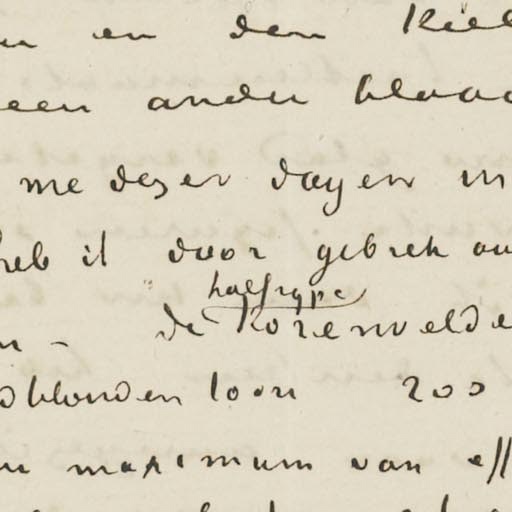 en den kiel
een ander blaauw
me dezer dagen in
heb ik door gebrek aan
halfrype
de Korenvelde
blonden toon zoo
maximum van eff